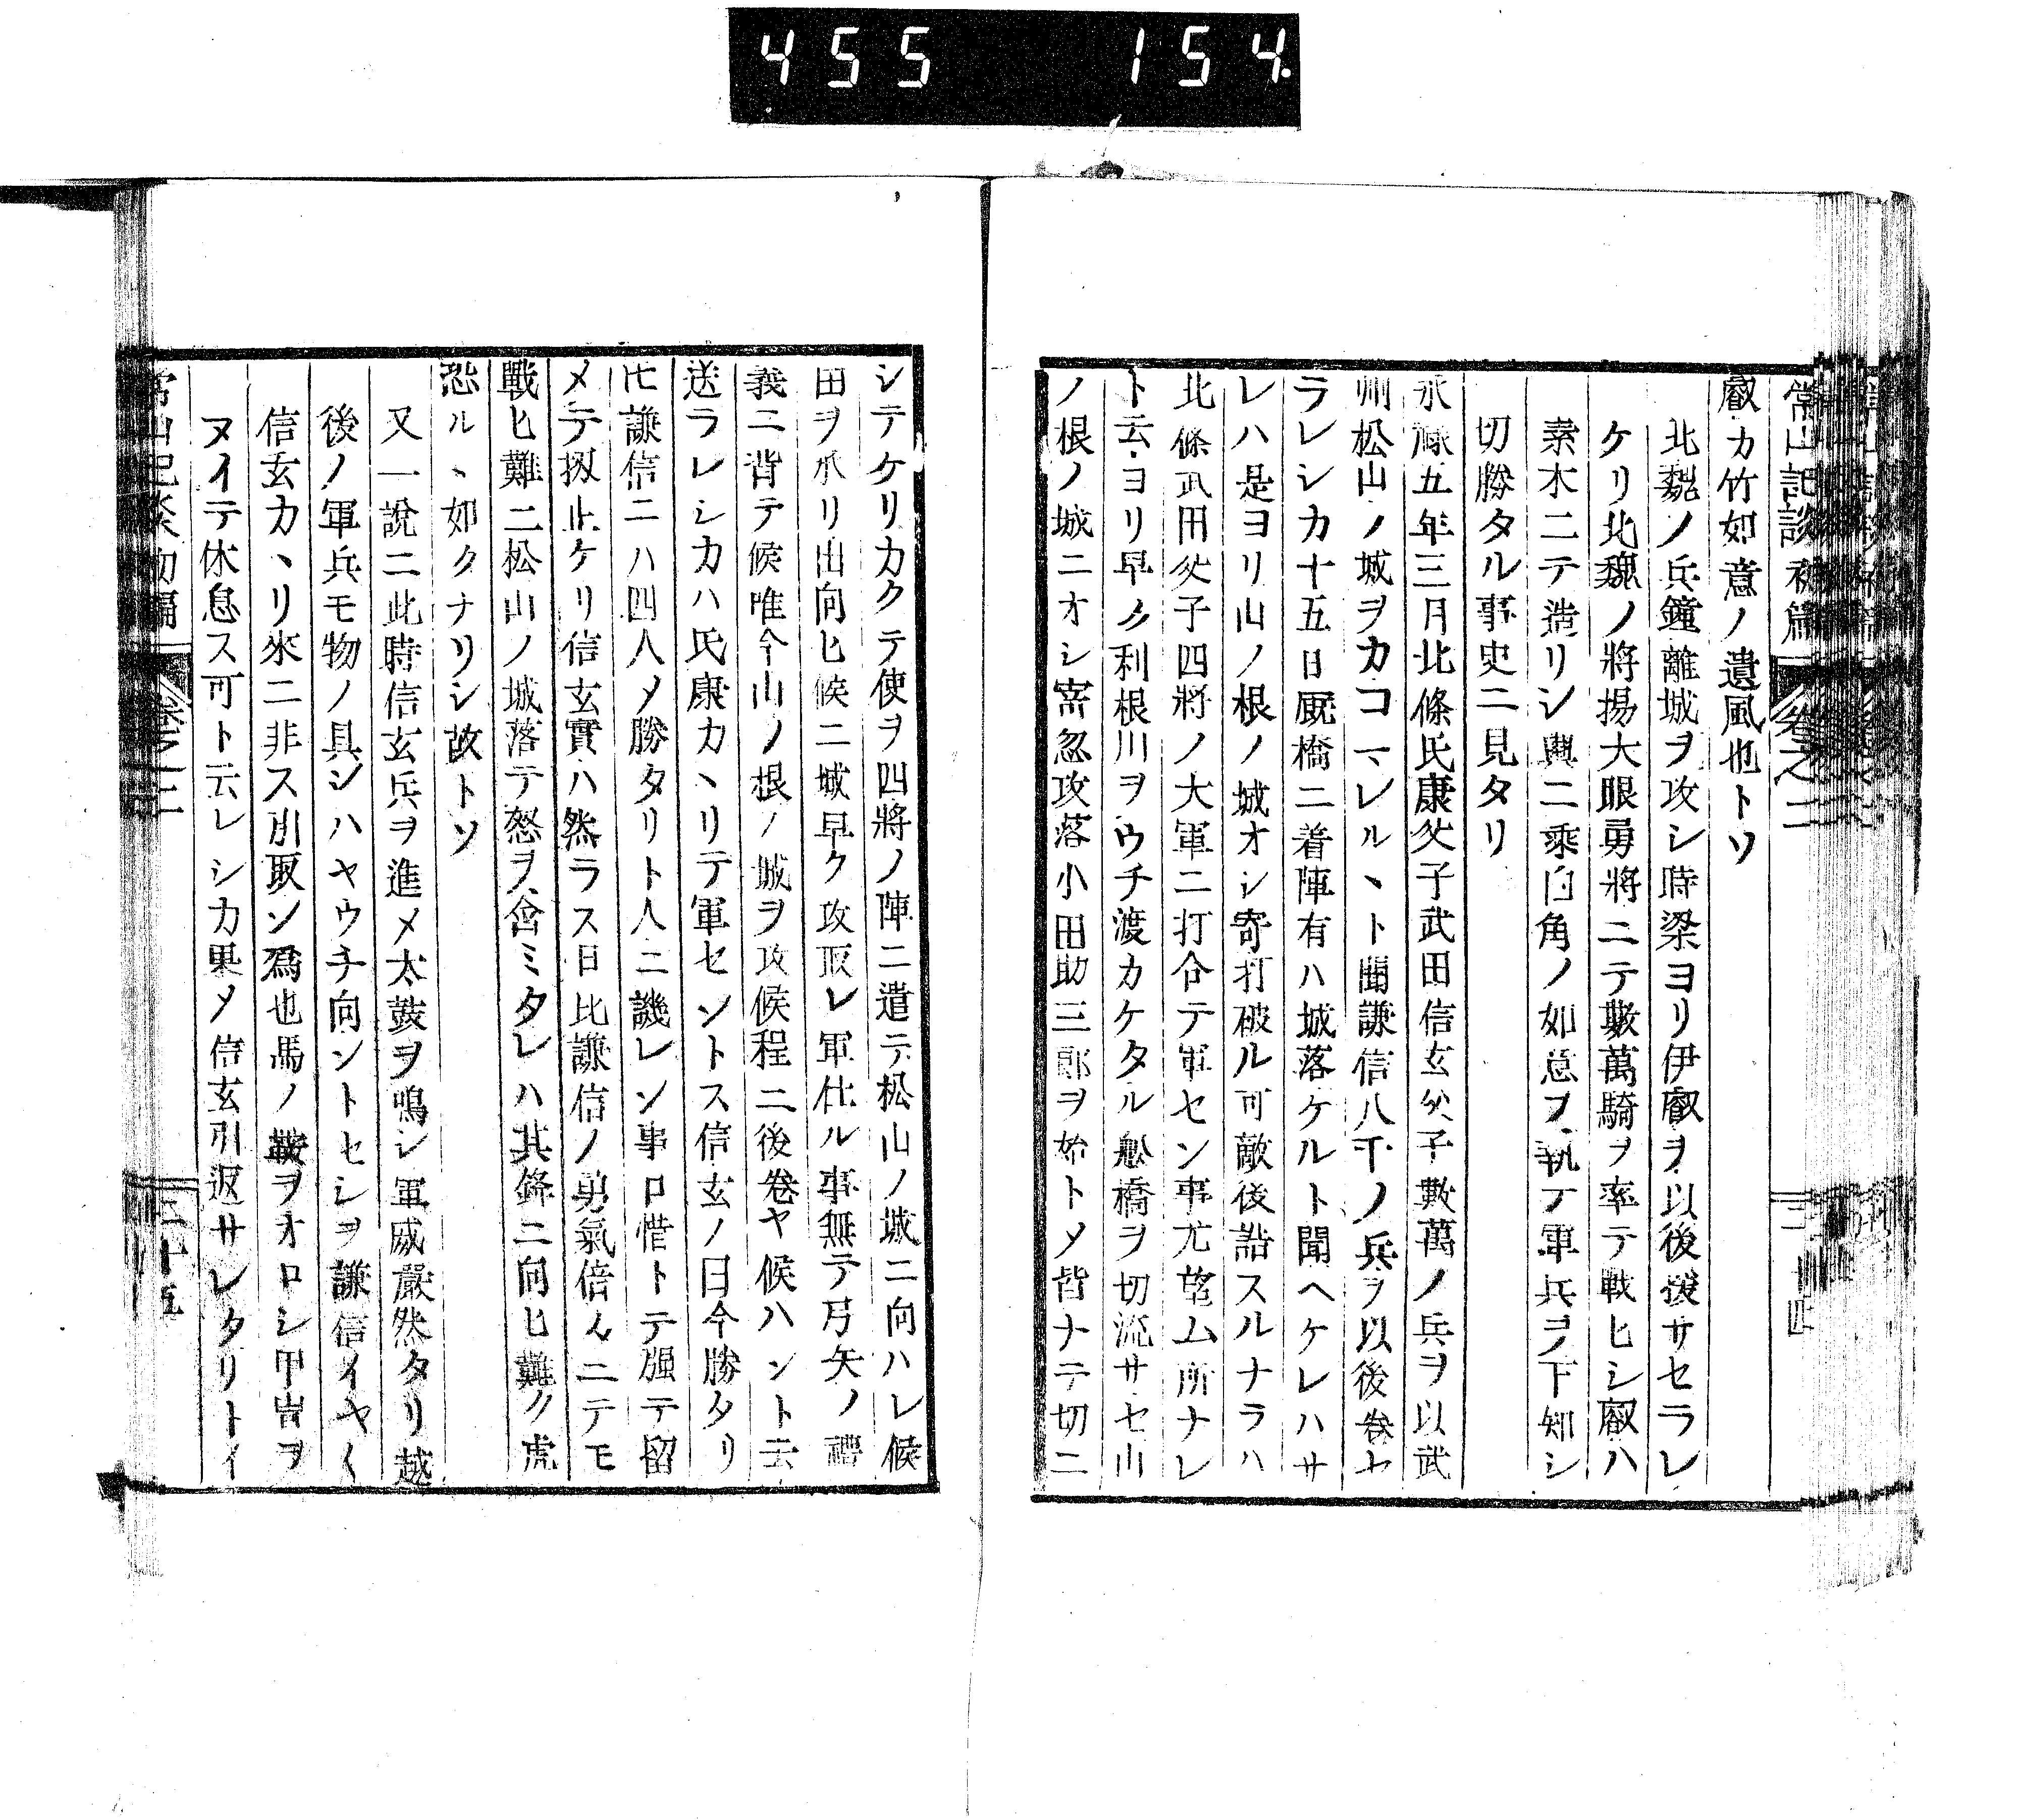 455 154.
常山記談初篇 卷之二
叡カ竹如意ノ遺風也トソ
北魏ノ兵鐘離城ヲ攻シ時梁ヨリ伊叡ヲ以後援サセラレ
ケリ北魏ノ將揚大眼勇將ニテ數萬騎ヲ率テ戰ヒシ叡ハ
素木ニテ造リシ輿ニ乘白角ノ如意ヲ執テ軍兵ヲ下知シ
切勝タル事史ニ見タリ
永祿五年三月北條氏康父子武田信玄父子數萬ノ兵ヲ以武
州松山ノ城ヲカコマレルヽト聞謙信八千ノ兵ヲ以後卷セ
ラレシカ十五日厩橋ニ着陣有ハ城落ケルト聞ヘケレハサ
レハ是ヨリ山ノ根ノ城オシ寄打破ル可敵後詰スルナラハ
北條武田父子四將ノ大軍ニ打合テ軍セン事尤望ム所ナレ
ト云ヨリ早ク利根川ヲウチ渡カケタル舩橋ヲ切流サセ山
ノ根ノ城ニオシ寄忽攻落小田助三郎ヲ始トメ皆ナテ切ニ
シテケリカクテ使ヲ四將ノ陣ニ遣テ松山ノ城ニ向ハレ候
田ヲ承リ出向ヒ候ニ城早ク攻取レ軍仕ル事無テ弓矢ノ禮
義ニ背テ候唯今山ノ根ノ城ヲ攻候程ニ後卷ヤ候ハント云
送ラレシカハ氏康カヽリテ軍セントス信玄ノ曰今勝タリ
𪜈謙信ニハ四人メ勝タリト人ニ譏レン事口惜トテ强テ留
メテ扱止ケリ信玄實ハ然ラス日比謙信ノ勇氣倍〻ニテモ
戰ヒ難ニ松山ノ城落テ怒ヲ含ミタレハ其鋒ニ向ヒ難ク虎
恐ルヽ如クナリシ故トソ
又一說ニ此時信玄兵ヲ進メ太鼓ヲ鳴シ軍威嚴然タリ越
後ノ軍兵モ物ノ具シハヤウチ向ントセシヲ謙信イヤ〱
信玄カヽリ來ニ非ス引取ン爲也馬ノ鞍ヲオロシ甲冑ヲ
ヌイテ休息ス可ト云レシカ果メ信玄引返サレタリトイ
常山記談初編 卷之二 二十五